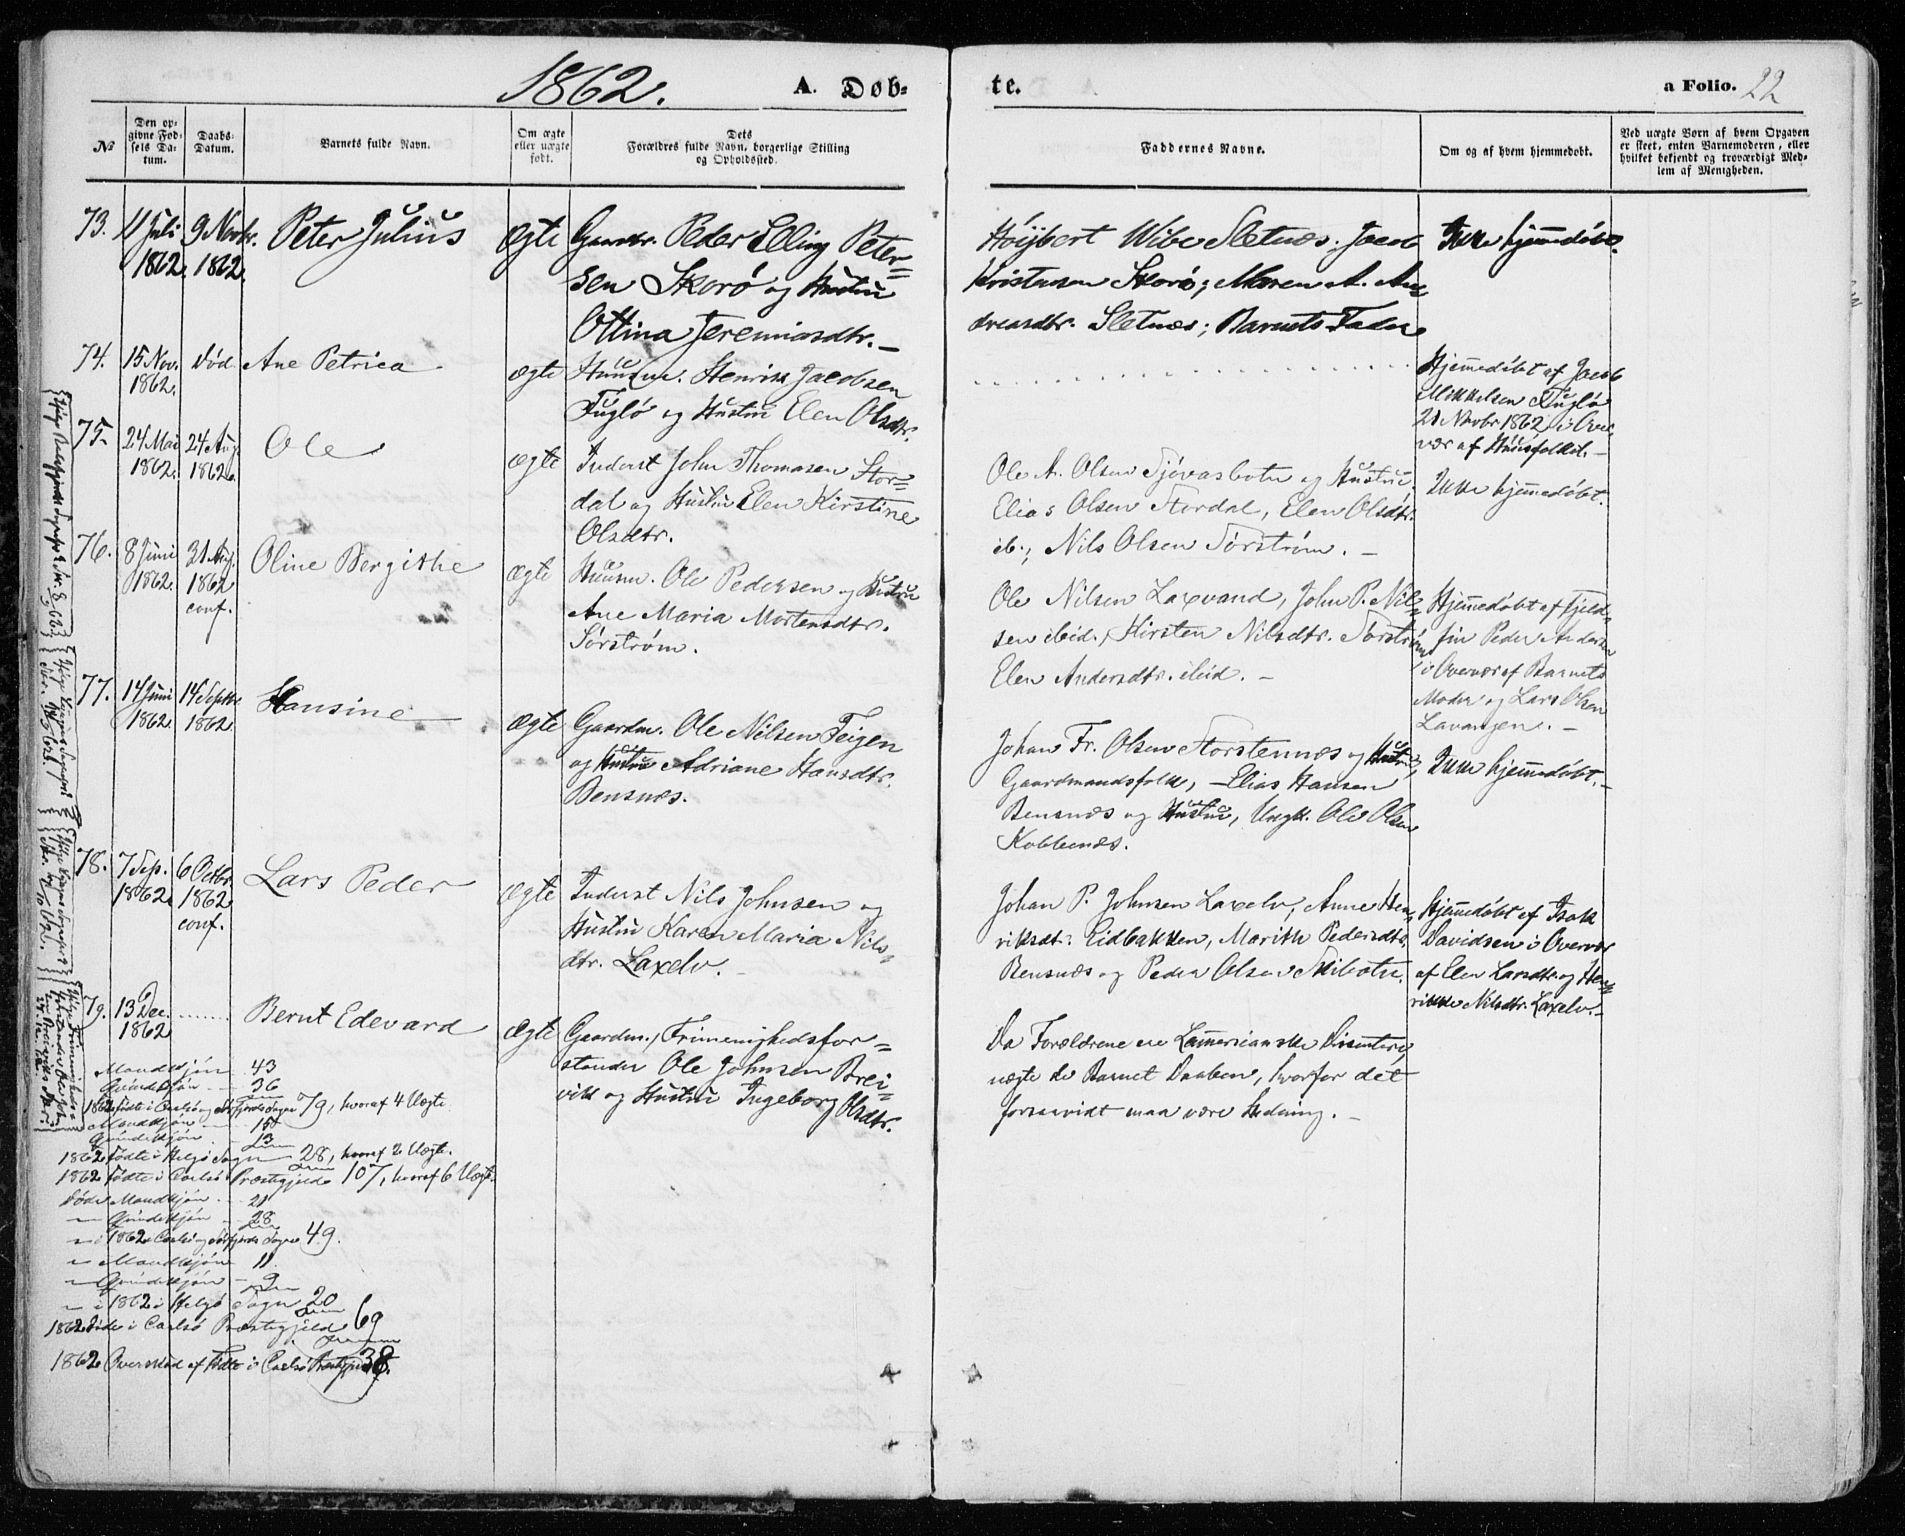 1862.
A. Døb-
te.
a Folio. 22
№
Den op-
givne Fød-
sels Da-
tum.
Daabs-
Datum.
Barnets fulde Navn.
Om ægte
eller uægte
født.
Dets
Forældres fulde Navn, borgerlige Stilling
og Opholdssted.
Faddernes Navne.
Om og af hvem hjemmedøbt.
Ved uægte Børn af hvem Opgaven
er skeet, enten Barnemoderen, eller
hvilket bekjendt og troværdigt Med-
lem af Menigheden.
73.
11 Juli
1862.
9 Novbr.
1862.
Peter Julius
Ægte
Gaardbr. Peder Elling Peter-
sen Skorø og Hustru
Ottina Jeremiasdtr. —
Høijbert Wibe Sletnæs; Jacob
Kristensen Skorø; Maren A. An-
dreasdtr. Sletnæs; Barnets Fader
Ikke hjemmedøbt.
74.
15 Nov.
1862.
Død
Ane Petrica
ægte
Huusm. Henrik Jacobsen
Fuglø og Hustru Elen Olsdtr.
Hjemmedøbt af Jacob
Mikkelsen Fuglø
21 Novbr 1862 i Over-
vær af Huusfolket. —
75.
24 Mai
1862.
24 Aug.
1862.
Ole
ægte
Inderst John Thomasen Stor-
dal og Hustru Elen Kirstine
Olsdtr.
Ole A. Olsen Sjøvasbotn og Hustru,
Elias Olsen Stordal, Elen Olsdtr.
ib., Nils Olsen Sørstrøm. —
Ikke hjemmedøbt.
76.
8 Juni
1862.
31 Aug.
1862
conf.
Oline Bergithe
ægte
Huusm. Ole Pedersen og Hustru
Ane Maria Mortensdtr.
Sørstrøm.
Ole Nilsen Laxvand, John P. Nil-
sen ibid., Kirsten Nilsdtr. Sørstrøm
Elen Andersdtr. ibid. —
Hjemmedøbt af Fjeld-
fin Peder Andersen
i Overvær af Barnets
Moder og Lars Olsen
Lavangen. —
77.
14 Juni
1862.
14 Septbr.
1862.
Hansine
Ægte
Gaardm. Ole Nilsen Teigen
og Hustru Adriane Hansdtr.
Bensnæs.
Johan Fr. Olsen Storstennæs og Hustru,
Gaardmandsfolk, — Elias Hansen
Bensnæs og Hustru, Ungk. Ole Olsen
Kobbenæs.
Ikke hjemmedøbt. —
78.
7 Sep.
1862.
6 Octbr.
1862
conf.
Lars Peder
Ægte
Inderst Nils Johnsen og
Hustru Karen Maria Nils-
dtr. Laxelv. —
Johan P. Johnsen Laxelv, Anne Hen-
riksdt. Eidbakken, Marith Pedersdtr.
Bensnæs og Peder Olsen Skibotn.
Hjemmedøbt af Isak
Davidsen i Overvær
af Elen Larsdtr. og Hen-
rikke Nilsdtr. Laxelv. —
79.
13 Dec.
1862
Bernt Edevard
Ægte
Gaardm., Frimenighedsfor-
stander Ole Johnsen Brei-
vik og Hustru Ingeborg Olsdtr.
Da Forældrene ere Lammerianske Dissentere,
nægte de Barnet Daaben, hvorfor det
forsaavidt maa være Hedning. —
Mandkjøn 43
Qvindekjøn 36
1862 fødte i Carlsø og Sogne 79, hvoraf 4 Uægte.
Mandkjøn 15
Qvindekjøn 13
1862 fødte i Helgø Sogn 28, hvoraf 2 Uægte.
1862 fødte i Carlsø Præstegjeld 107, hvoraf 6 Uægte.
Døde Mandkjøn 21
— Qvindekjøn 28
— i 1862 i Carlsø og Sogne 49.
— Mandkjøn 11
— Qvindekjøn 9
— i 1862 i Helgø Sogn 20
1862 døde i Carlsø Præstegjeld 69
1862 Overskud af Fødte i Carlsø Præstegjeld 38.